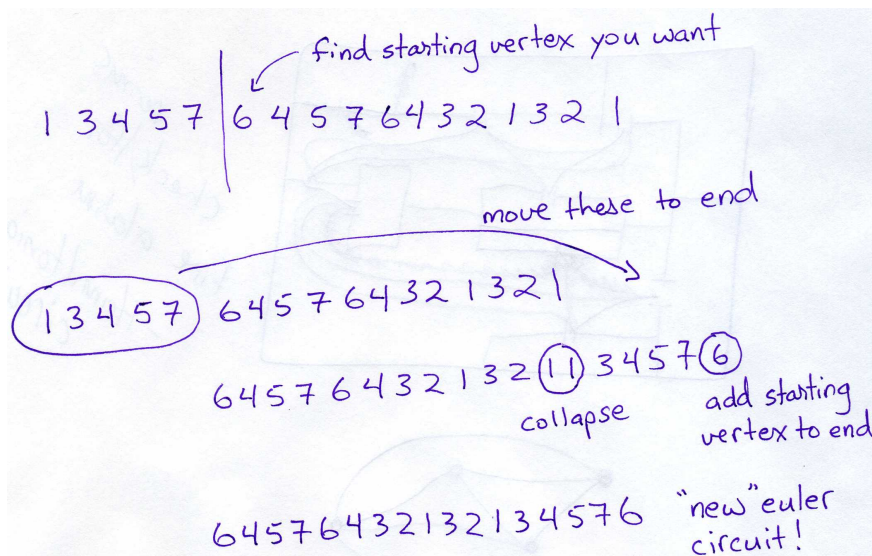 find starting vertex you want
1 3 4 5 7 | 6 4 5 7 6 4 3 2 1 3 2 1
move these to end
1 3 4 5 7 6 4 5 7 6 4 3 2 1 3 2 1
6 4 5 7 6 4 3 2 1 3 2 1 1 3 4 5 7 6
collapse
add starting
vertex to end
6 4 5 7 6 4 3 2 1 3 2 1 3 4 5 7 6
"new" euler
circuit!